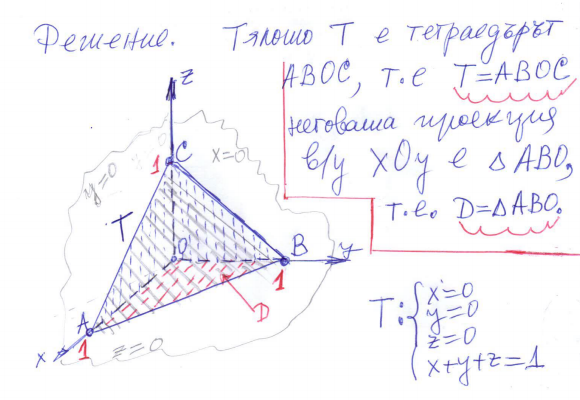 Решение. Тялото T е тетраедърът
ABOC, т.е T=ABOC,
неговата проекция
в/у xOy е ΔABO,
т.е. D=ΔABO.
z
C
1
x=0
y=0
T
O
B
y
1
A
1
D
x
z=0
T: { x=0
y=0
z=0
x+y+z=1